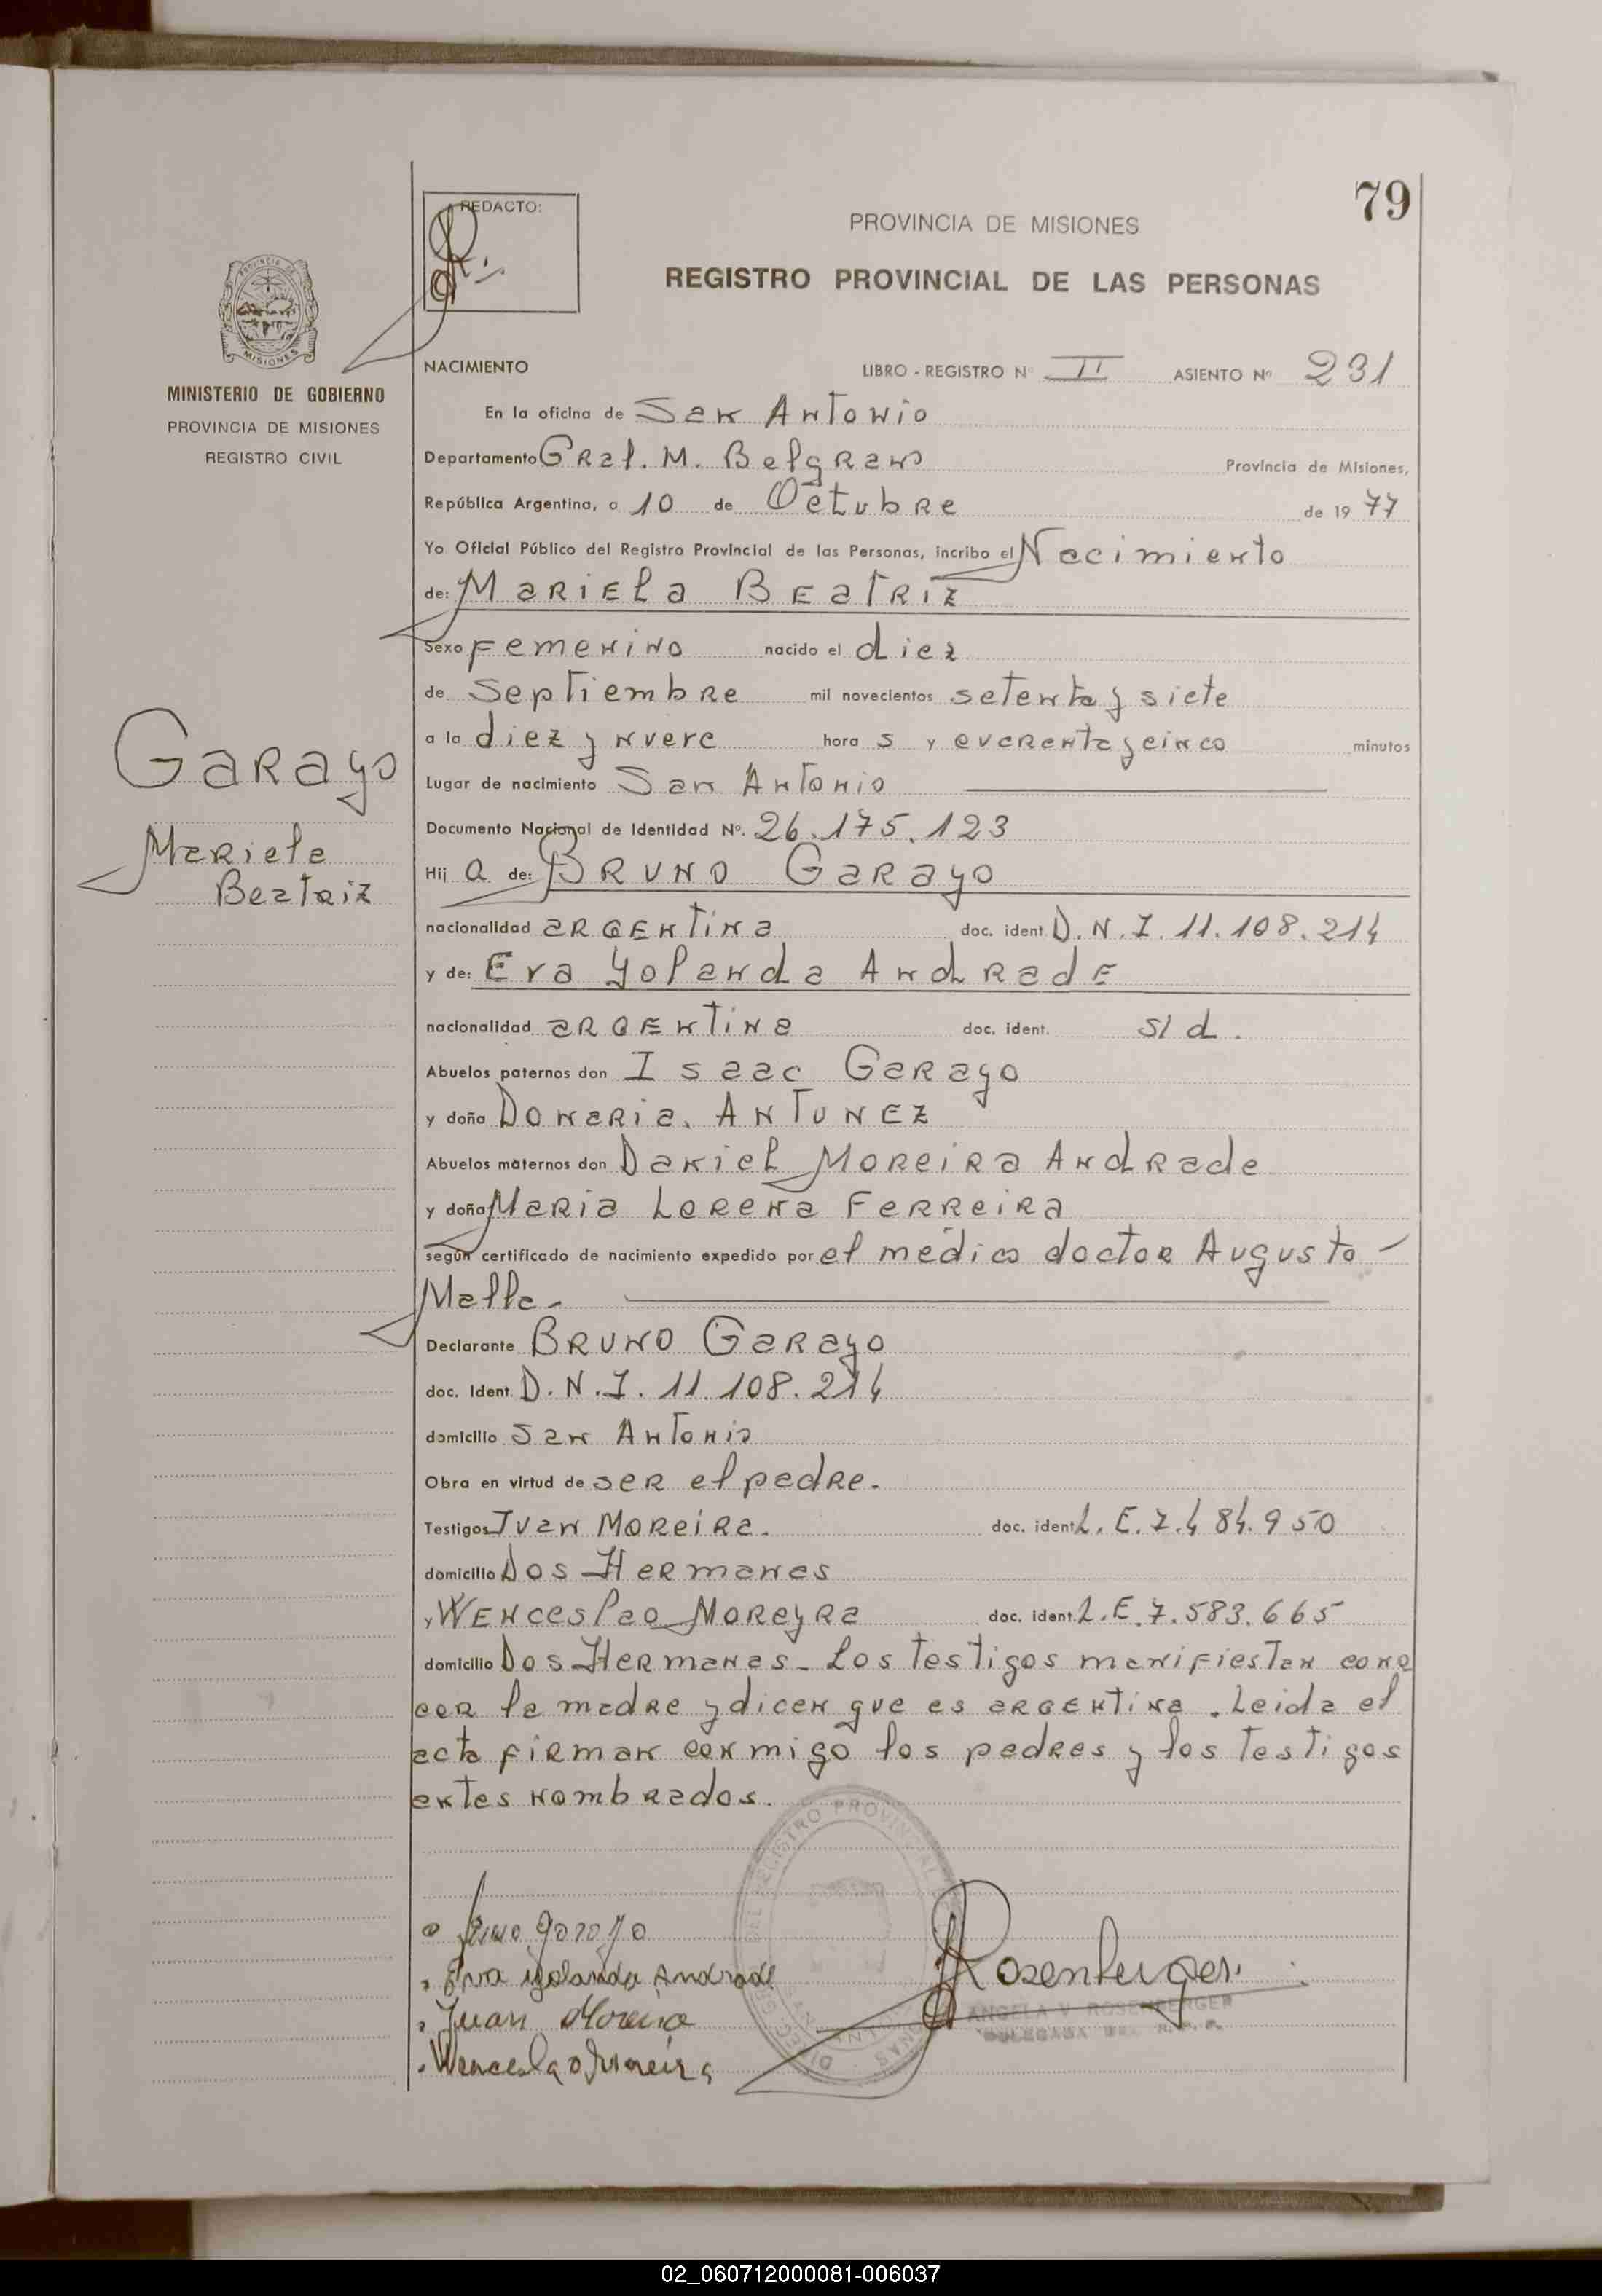 79
REDACTO:
PROVINCIA DE MISIONES
REGISTRO PROVINCIAL DE LAS PERSONAS
PROVINCIA DE
MISIONES
MINISTERIO DE GOBIERNO
PROVINCIA DE MISIONES
REGISTRO CIVIL
NACIMIENTO LIBRO - REGISTRO Nº II ASIENTO Nº 231
En la oficina de San Antonio
Departamento Gral. M. Belgrano Provincia de Misiones,
República Argentina, a 10 de Octubre de 1977
Yo Oficial Público del Registro Provincial de las Personas, incribo el Nacimiento
de: Mariela Beatriz
Sexo Femenino nacido el diez
de Septiembre mil novecientos setenta y siete
a la diez y nueve hora s y cuarenta y cinco minutos
Lugar de nacimiento San Antonio
Documento Nacional de Identidad Nº. 26.175.123
Garayo
Mariela
Beatriz
Hij a de: Bruno Garayo
nacionalidad argentina doc. ident. D.N.I. 11.108.214
y de: Eva Yolanda Andrade
nacionalidad argentina doc. ident. s/d.
Abuelos paternos don Isaac Garayo
y doña Donaria. Antunez
Abuelos maternos don Daniel Moreira Andrade
y doña Maria Lorena Ferreira
según certificado de nacimiento expedido por el medico doctor Augusto -
Malla-
Declarante Bruno Garayo
doc. Ident. D.N.I. 11.108.214
domicilio San Antonio
Obra en virtud de ser el padre.
Testigos Juan Moreira. doc. ident. L.E.7.484.950
domicilio Dos Hermanas
y Wenceslao Moreyra doc. ident. L.E.7.583.665
domicilio Dos Hermanas- Los testigos manifiestan cono
cer la madre y dicen que es argentina. Leida el
acta firman conmigo los padres y los testigos
antes nombrados.
Bruno garayo
Eva yolanda Andrade
Juan Moreira
Wenceslao Moreira
Rosenberger.
ANGELA V. ROSENBERGER
02_060712000081-006037